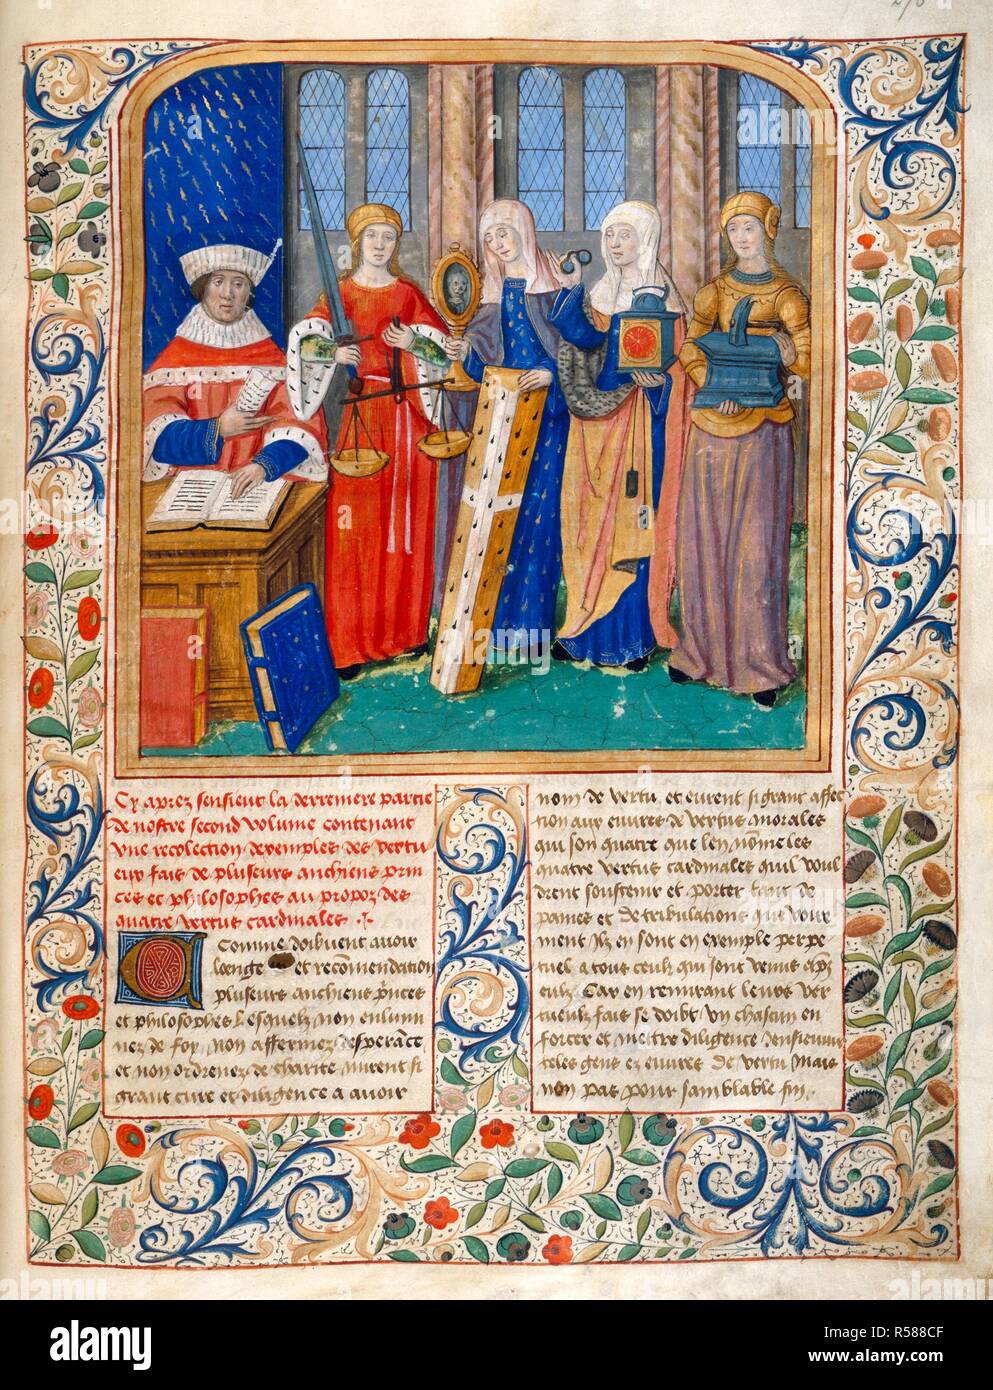 Cy aprez sensieut la derreniere partie
de nostre second volume contenant
vne recolection dexemples des vertu
eux fais de pluseurs anchiens prin
ces et philosophes au propoz des
quatre vertus cardinales
Comme doibuent auoir
loenge et recomendation
pluseurs anchiens princes
et philosophes lesquelz non enlumi
nez de foy non affermez desperance
et non ordenez de charite mirent si
grant cure et diligence a auoir
nom de vertu et eurent si grant affec
tion aux euures de vertus morales
qui son quatre que len nomme les
quatre vertus cardinales quil voul
drent soustenir et porter tant de
paines et de tribulations que vraye
ment ilz en sont en exemple perpe
tuel a tous ceulx qui sont venus aprez
eulx Car en remirant leurs ver
tueulx fais se doibt vn chascun en
forcer et mettre diligence densieuir
teles gens ez euures de vertu Mais
non pas pour samblable fin
alamy stock photo
alamy
R588CF
www.alamy.com